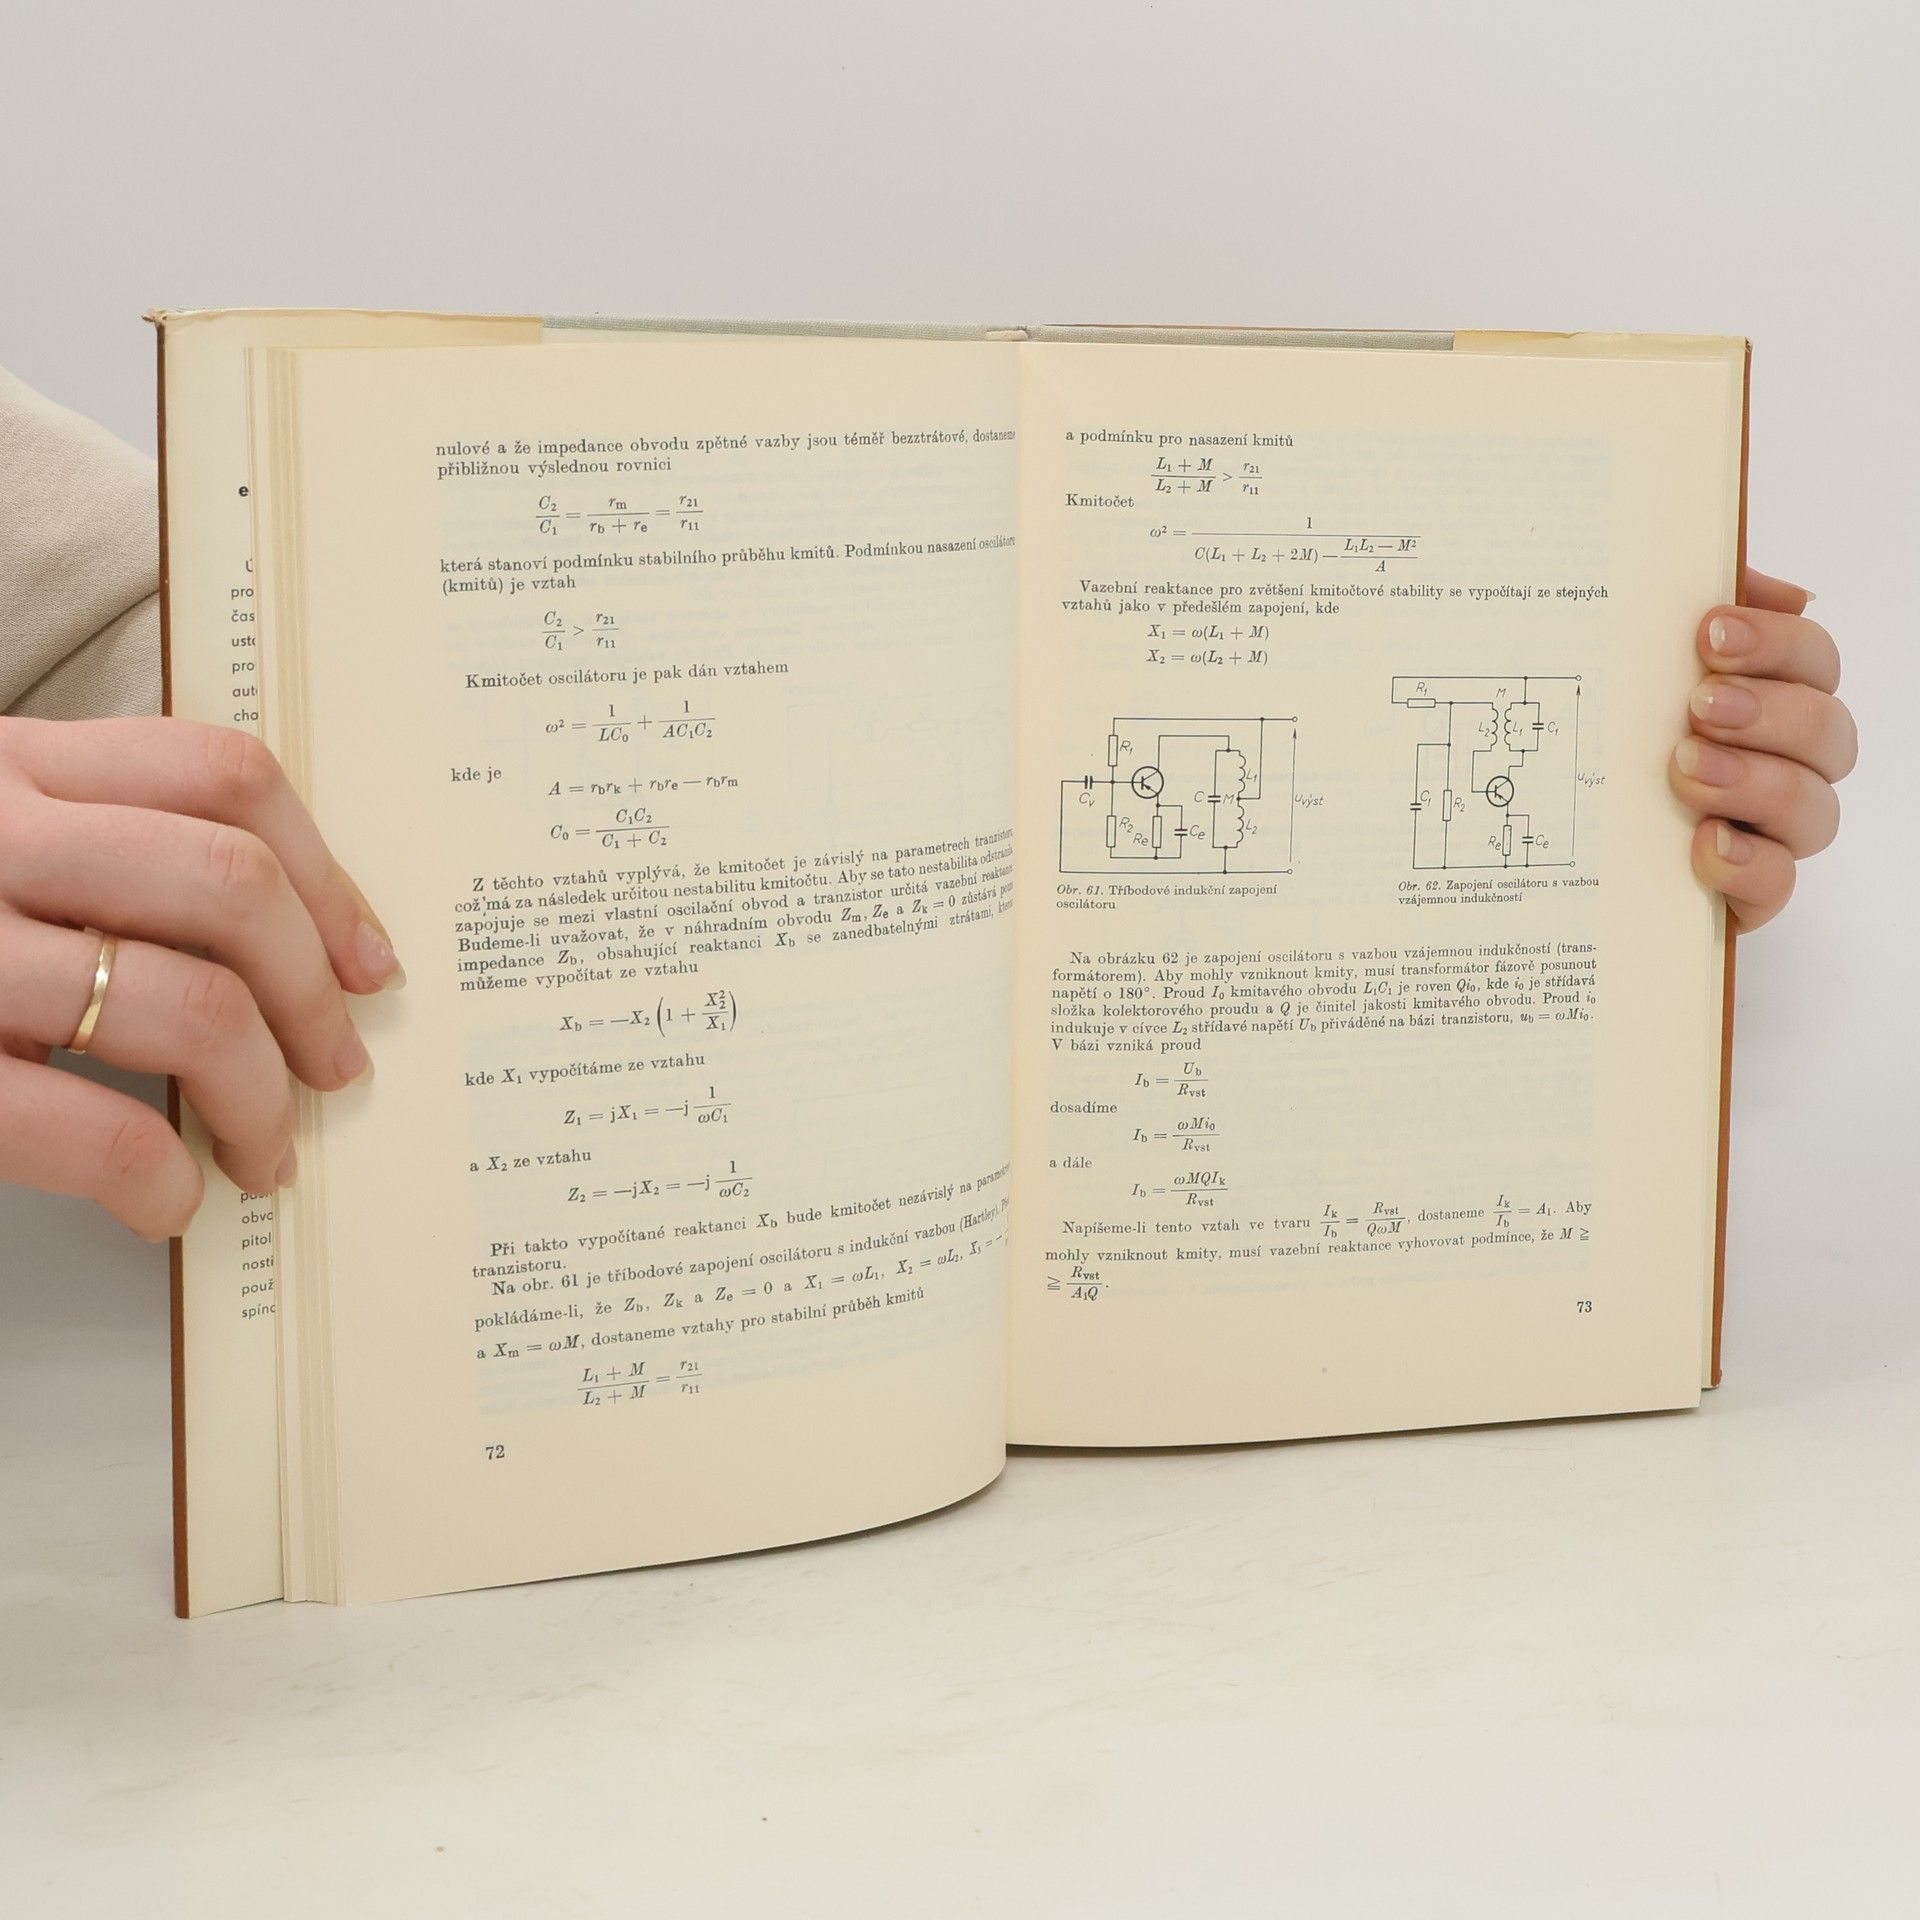 e
pro
čas
pro
cho
obvo
pitol
nosti
použ
nulové a že impedance obvodu zpětné vazby jsou téměř bezztrátové, dostaneme
přibližnou výslednou rovnici
C₂/C₁ = rₘ/(r_b + rₑ) = r₂₁/r₁₁
která stanoví podmínku stabilního průběhu kmitů. Podmínkou nasazení oscilátoru
(kmitů) je vztah
C₂/C₁ > r₂₁/r₁₁
Kmitočet oscilátoru je pak dán vztahem
ω² = 1/(LC₀) + 1/(AC₁C₂)
kde je
A = r_b r_k + r_b rₑ — r_b rₘ
C₀ = C₁C₂/(C₁ + C₂)
Z těchto vztahů vyplývá, že kmitočet je závislý na parametrech tranzistoru
což má za následek určitou nestabilitu kmitočtu. Aby se tato nestabilita odstranila
zapojuje se mezi vlastní oscilační obvod a tranzistor určitá vazební reaktance
Budeme-li uvažovat, že v náhradním obvodu Zₘ, Zₑ a Z_k = 0 zůstává
impedance Z_b, obsahující reaktanci X_b se zanedbatelnými ztrátami,
můžeme vypočítat ze vztahu
X_b = —X₂ (1 + X₂²/X₁)
kde X₁ vypočítáme ze vztahu
Z₁ = jX₁ = —j 1/(ωC₁)
a X₂ ze vztahu
Z₂ = —jX₂ = —j 1/(ωC₂)
Při takto vypočítané reaktanci X_b bude kmitočet nezávislý na
tranzistoru.
Na obr. 61 je tříbodové zapojení oscilátoru s indukční vazbou (Hartley).
pokládáme-li, že Z_b, Z_k a Zₑ = 0 a X₁ = ωL₁, X₂ = ωL₂,
a Xₘ = ωM, dostaneme vztahy pro stabilní průběh kmitů
(L₁ + M)/(L₂ + M) = r₂₁/r₁₁
72
a podmínku pro nasazení kmitů
(L₁ + M)/(L₂ + M) > r₂₁/r₁₁
Kmitočet
ω² = 1/(C(L₁ + L₂ + 2M) — (L₁L₂ — M²)/A)
Vazební reaktance pro zvětšení kmitočtové stability se vypočítají ze stejných
vztahů jako v předešlém zapojení, kde
X₁ = ω(L₁ + M)
X₂ = ω(L₂ + M)
R₁
C_v
R₂
Rₑ
Cₑ
C
M
L₁
L₂
u_výst
Obr. 61. Tříbodové indukční zapojení
oscilátoru
R₁
M
L₂
L₁
C₁
C₁
R₂
Rₑ
Cₑ
u_výst
Obr. 62. Zapojení oscilátoru s vazbou
vzájemnou indukčností
Na obrázku 62 je zapojení oscilátoru s vazbou vzájemnou indukčností (trans-
formátorem). Aby mohly vzniknout kmity, musí transformátor fázově posunout
napětí o 180°. Proud I₀ kmitavého obvodu L₁C₁ je roven Qi₀, kde i₀ je střídavá
složka kolektorového proudu a Q je činitel jakosti kmitavého obvodu. Proud i₀
indukuje v cívce L₂ střídavé napětí U_b přiváděné na bázi tranzistoru, u_b = ωMi₀.
V bázi vzniká proud
I_b = U_b/R_vst
dosadíme
I_b = ωMi₀/R_vst
a dále
I_b = ωMQI_k/R_vst
Napíšeme-li tento vztah ve tvaru I_k/I_b = R_vst/(QωM), dostaneme I_k/I_b = Aᵢ. Aby
mohly vzniknout kmity, musí vazební reaktance vyhovovat podmínce, že M ≧
≧ R_vst/(AᵢQ).
73